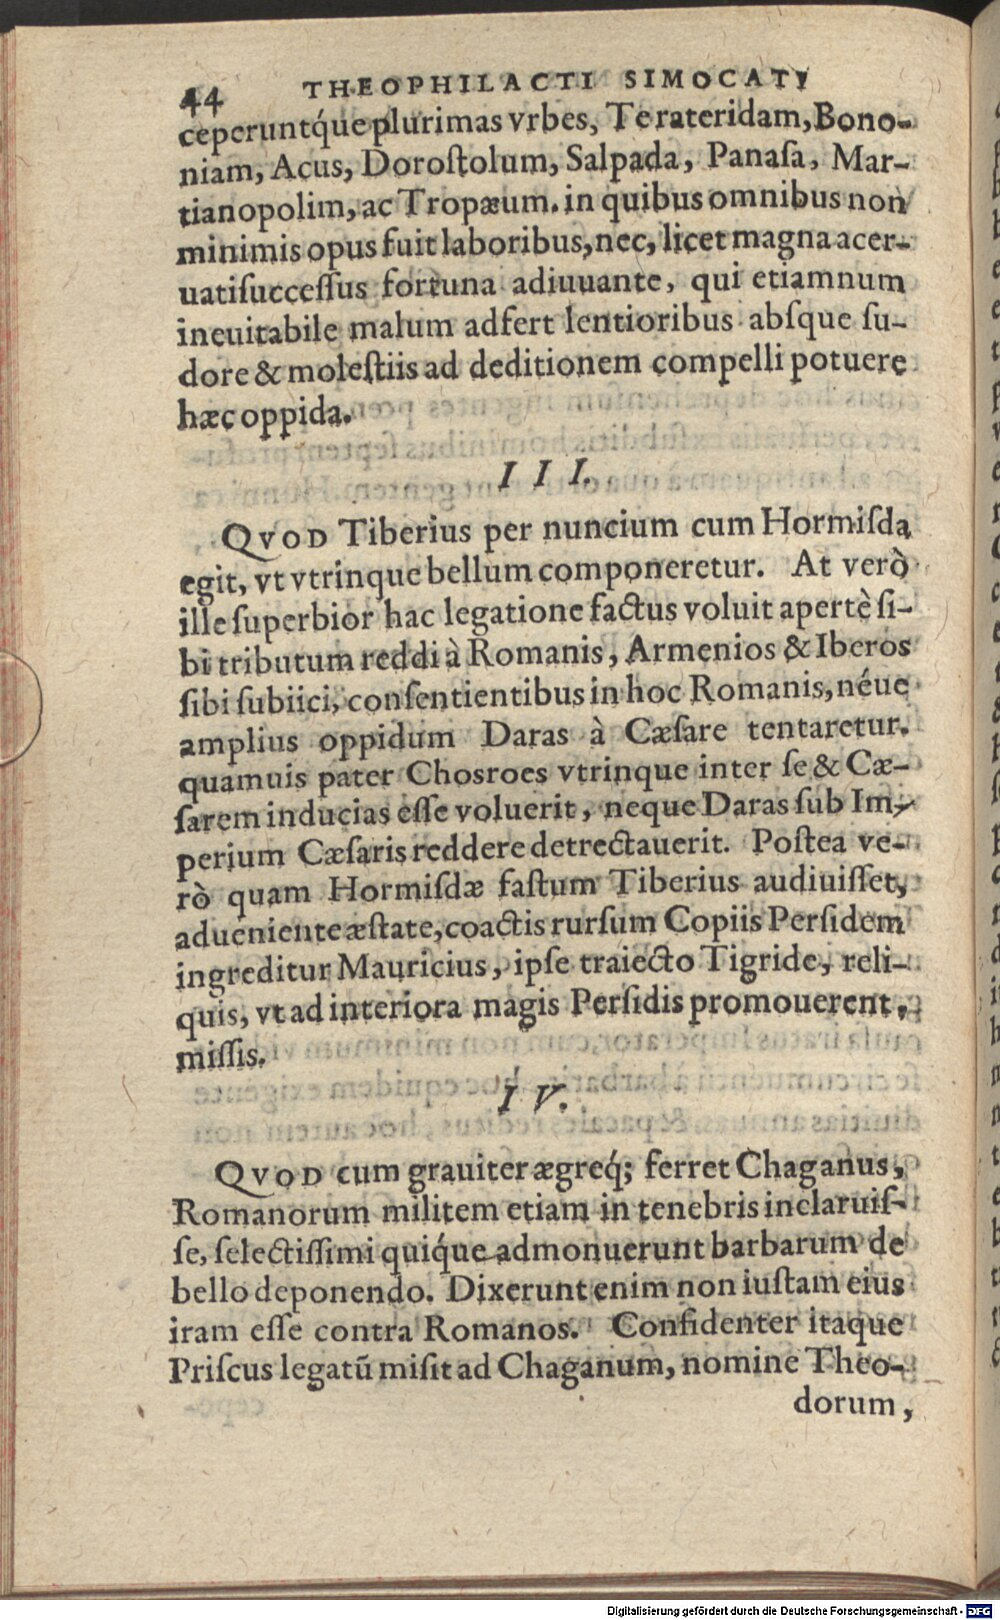 44 THEOPHILACTI SIMOCATI
ceperuntq́ue plurimas vrbes, Terateridam, Bono-
niam, Acus, Doroſtolum, Salpada, Panaſa, Mar-
tianopolim, ac Tropæum. in quibus omnibus non
minimis opus fuit laboribus, nec, licet magna acer-
uati ſucceſſus fortuna adiuuante, qui etiamnum
ineuitabile malum adfert lentioribus abſque ſu-
dore & moleſtiis ad deditionem compelli potuere
hæc oppida.
III.
QVOD Tiberius per nuncium cum Hormiſda
egit, vt vtrinque bellum componeretur. At verò
ille ſuperbior hac legatione factus voluit apertè ſi-
bi tributum reddi à Romanis, Armenios & Iberos
ſibi ſubiici, conſentientibus in hoc Romanis, néue
amplius oppidum Daras à Cæſare tentaretur.
quamuis pater Chosroes vtrinque inter ſe & Cæ-
ſarem inducias eſſe voluerit, neque Daras ſub Im-
perium Cæſaris reddere detrectauerit. Poſtea ve-
rò quam Hormiſdæ faſtum Tiberius audiuiſſet,
adueniente æſtate, coactis rurſum Copiis Perſidem
ingreditur Mauricius, ipſe traiecto Tigride, reli-
quis, vt ad interiora magis Perſidis promouerent,
miſſis.
IV.
QVOD cum grauiter ægreq́; ferret Chaganus,
Romanorum militem etiam in tenebris inclaruiſ-
ſe, ſelectiſſimi quiq́ue admonuerunt barbarum de
bello deponendo. Dixerunt enim non iuſtam eius
iram eſſe contra Romanos. Confidenter itaque
Priſcus legatũ miſit ad Chaganum, nomine Theo-
dorum,
Digitalisierung gefördert durch die Deutsche Forschungsgemeinschaft - DFG